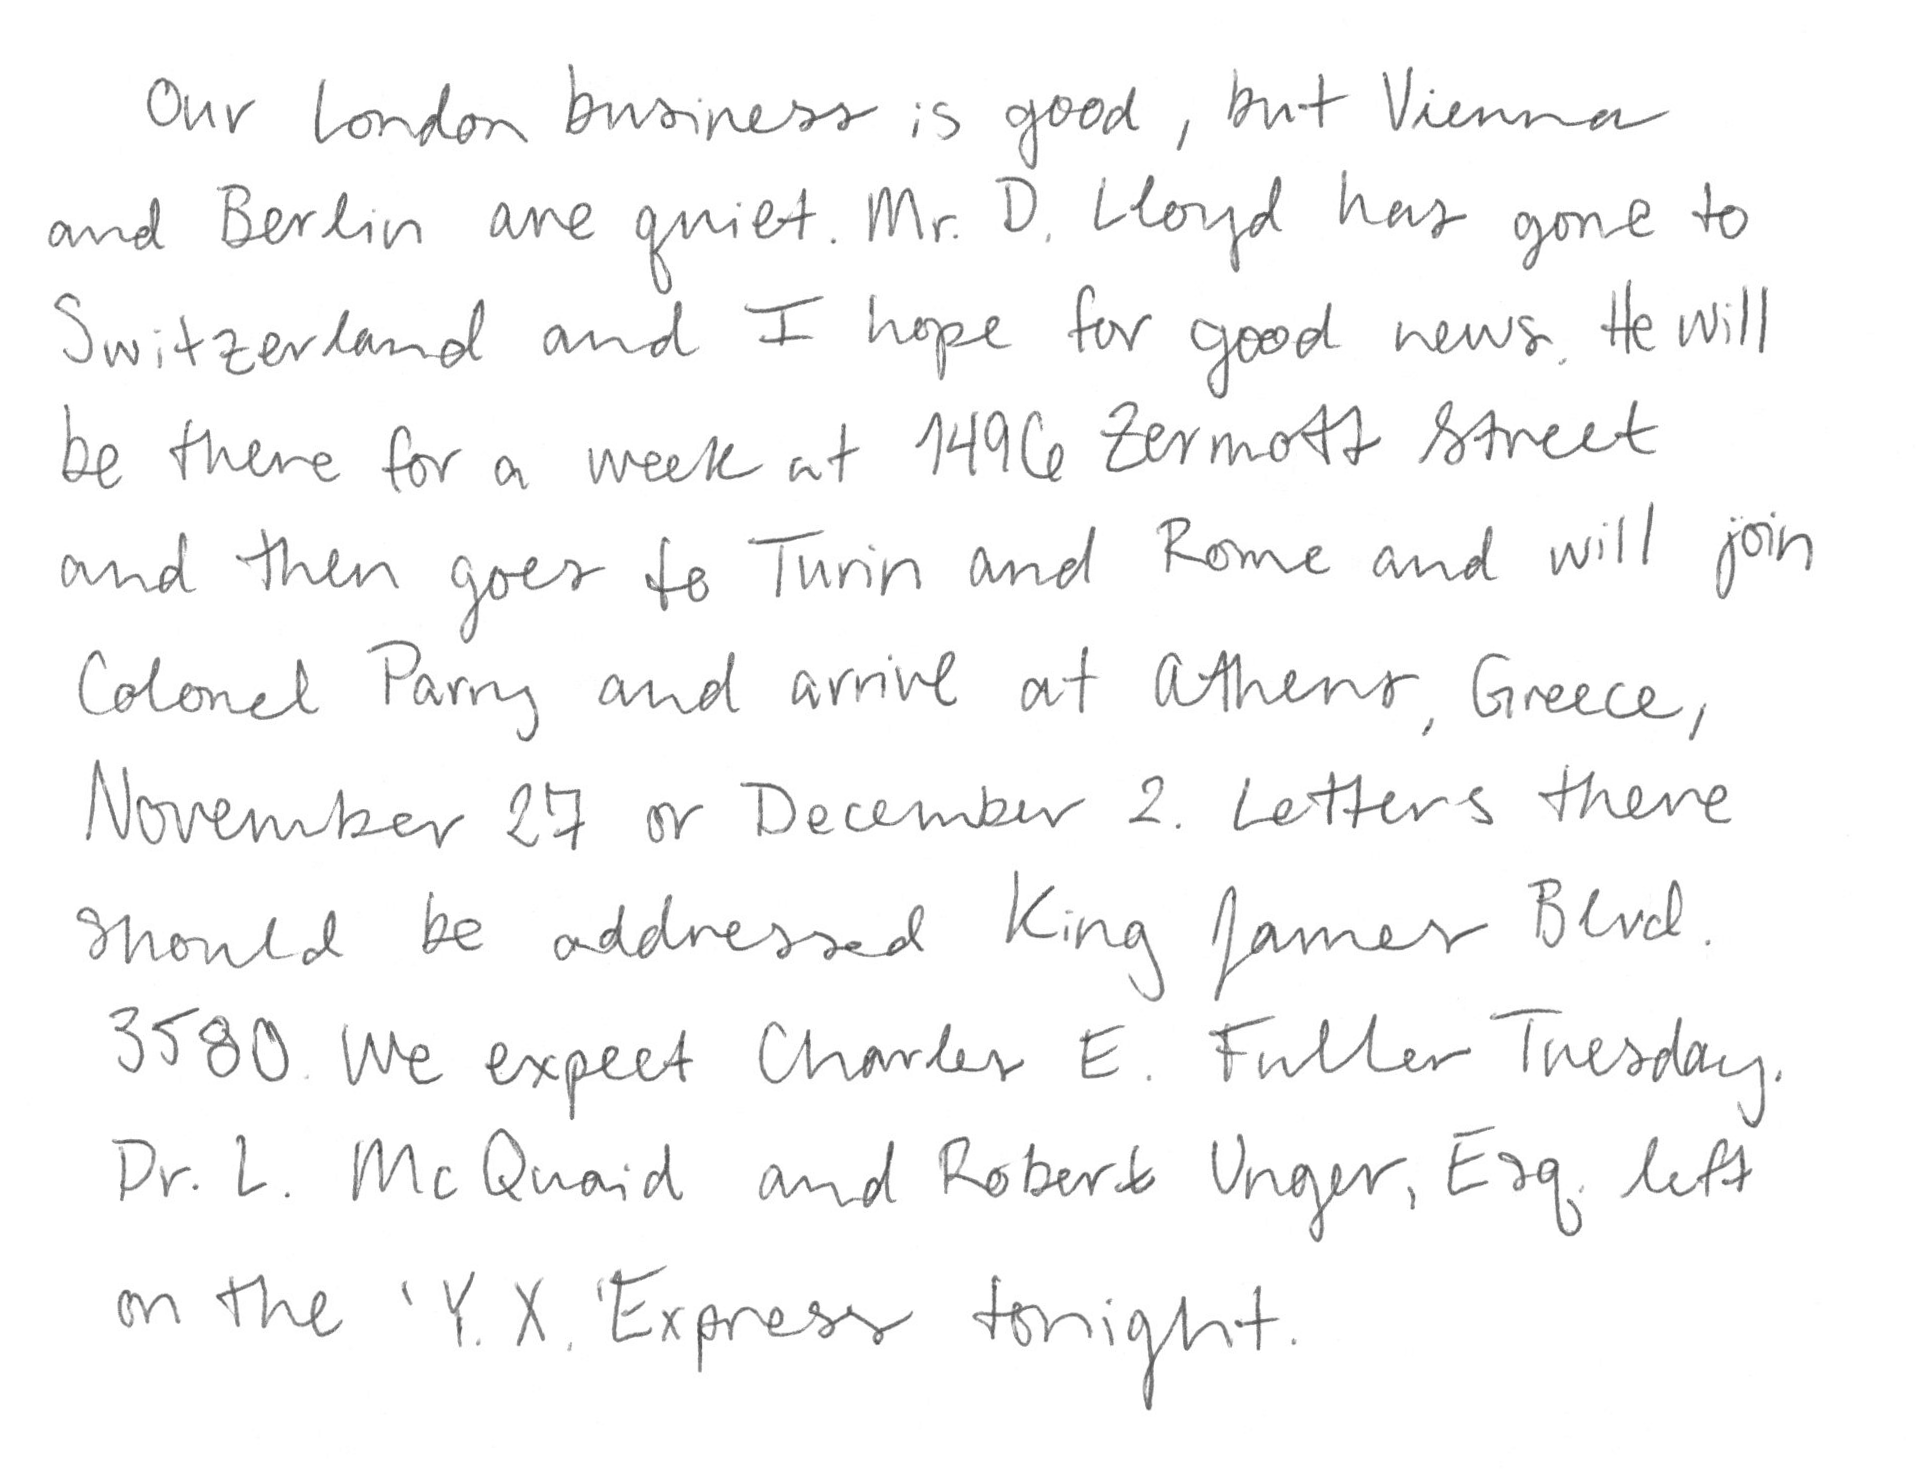 Our London business is good, but Vienna
and Berlin are quiet. Mr. D. Lloyd has gone to
Switzerland and I hope for good news. He will
be there for a week at 1496 Zermott Street
and then goes to Turin and Rome and will join
Colonel Parry and arrive at Athens, Greece,
November 27 or December 2. Letters there
should be addressed King James Blvd.
3580. We expect Charles E. Fuller Tuesday.
Dr. L. McQuaid and Robert Unger, Esq. left
on the 'Y. X. 'Express tonight.